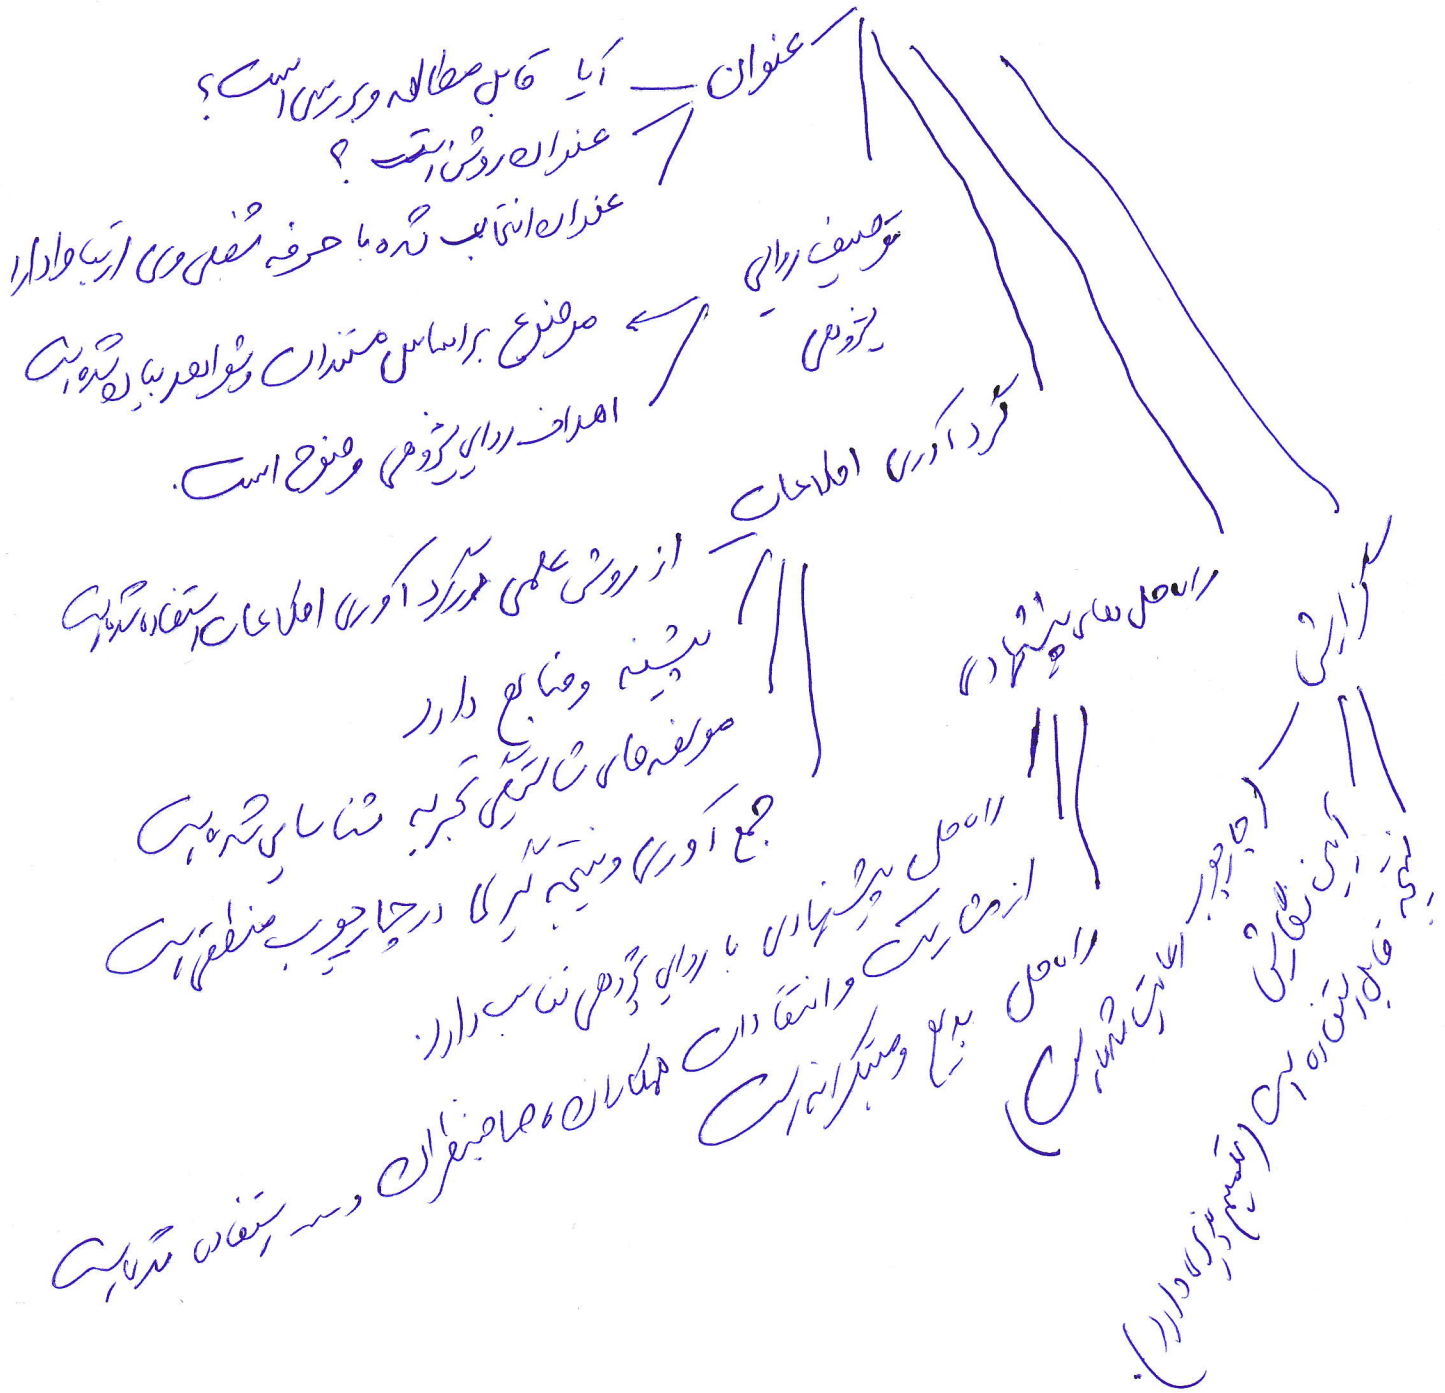 عنوان
آیا قابل مطالعه و بررسی است؟
عنوان روشن است؟
عنوان انتخاب شده با حرفه شغلی وی ارتباط دارد
توصیف روایی
پژوهی
موضوع براساس مستندات و شواهد بیان شده است
اهداف روایی پژوهی وضوح است.
گردآوری اطلاعات
از روش علمی در گردآوری اطلاعات استفاده شده است
پیشینه و منابع دارد
مولفه‌های شایستگی تجربه شناسایی شده است
جمع‌آوری و نتیجه گیری در چارچوب منطقی است
راه حل های پیشنهادی
راه حل پیشنهادی با روایی پژوهی تناسب دارد.
از مشارکت و انتقادات همکاران، صاحبنظران و ... استفاده شده است
راه حل بدیع و مبتکرانه است
گزارش
(چارچوب رعایت شده است)
آیین نگارش
نتیجه قابل استفاده است (تعمیم پذیری دارد).